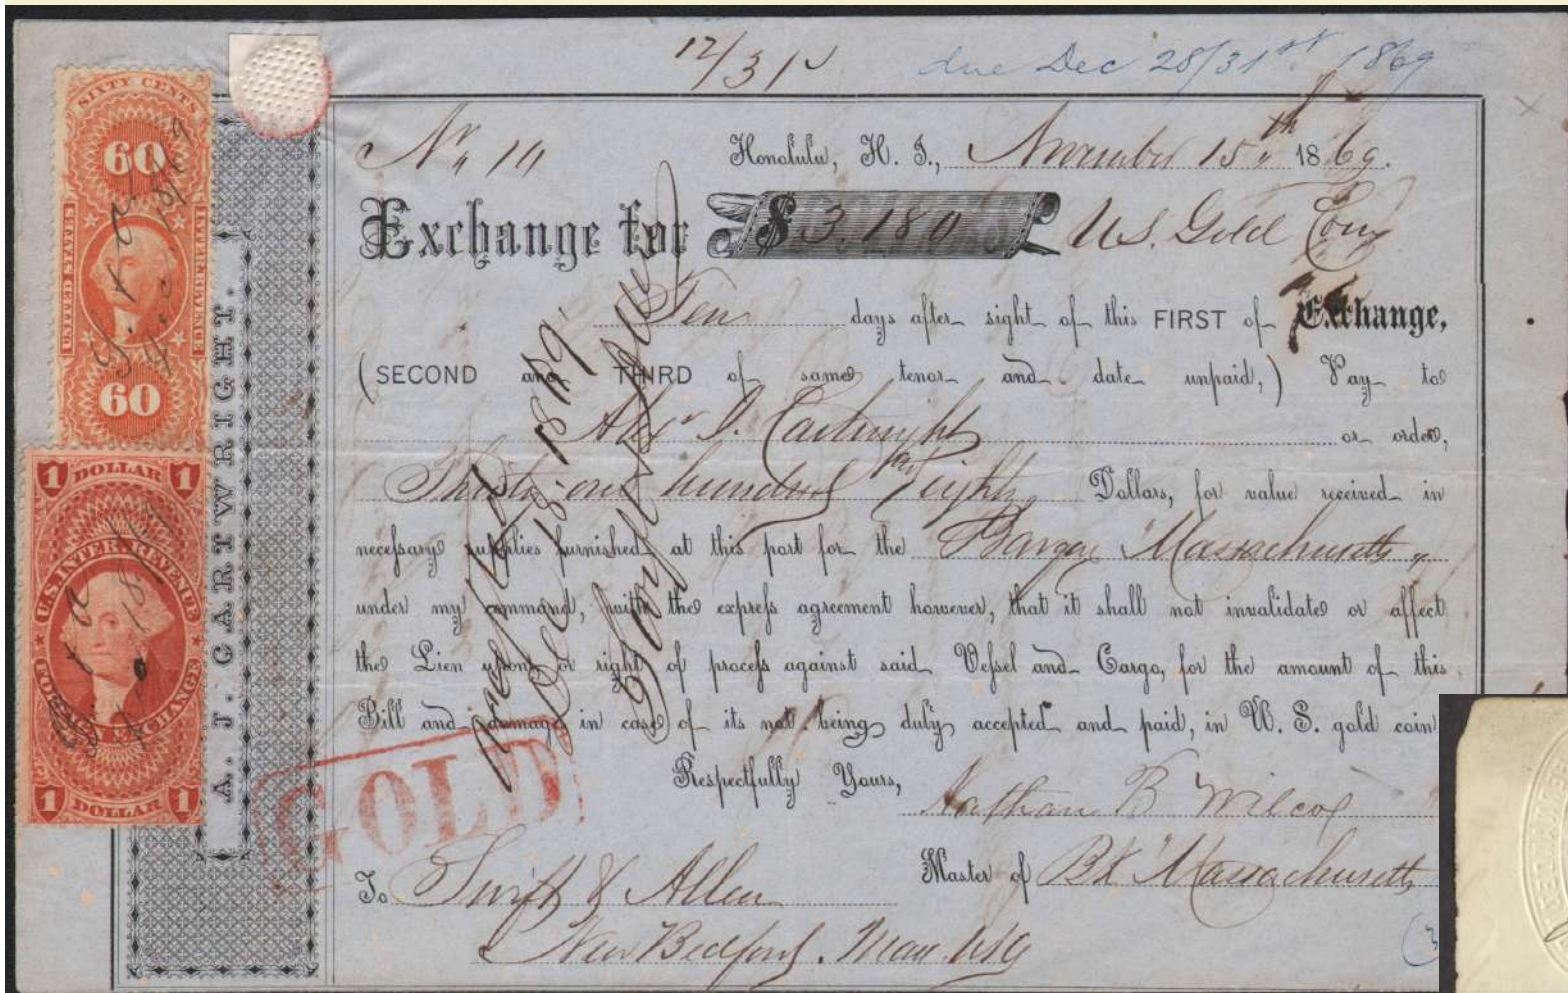 12/31
due Dec 28/31st 1869
SIXTY CENTS
60
UNITED STATES
60
1 DOLLAR 1
U.S. INTER. REVENUE
FOREIGN EXCHANGE
1 DOLLAR 1
A. J. CARTWRIGHT.
No 14
Honolulu, H. I., November 15th 1869.
Exchange for $3.180 U.S. Gold Coin
Ten days after sight of this FIRST of Exchange,
(SECOND and THIRD of same tenor and date unpaid,) Pay to
Alexr J. Cartwright or order,
Thirty-one hundred & Eighty Dollars, for value received in
necessary supplies furnished at this port for the Barque Massachusetts
under my command, with the express agreement however, that it shall not invalidate or affect
the Lien upon or right of process against said Vessel and Cargo, for the amount of this
Bill and damage in case of its not being duly accepted and paid, in U. S. gold coin
Respectfully Yours,
Nathan B Wilcox
Master of Bk Massachusetts
To Swift & Allen
New Bedford. Mass. USA
Accepted
Dec 18. 1869.
Swift & Allen
GOLD